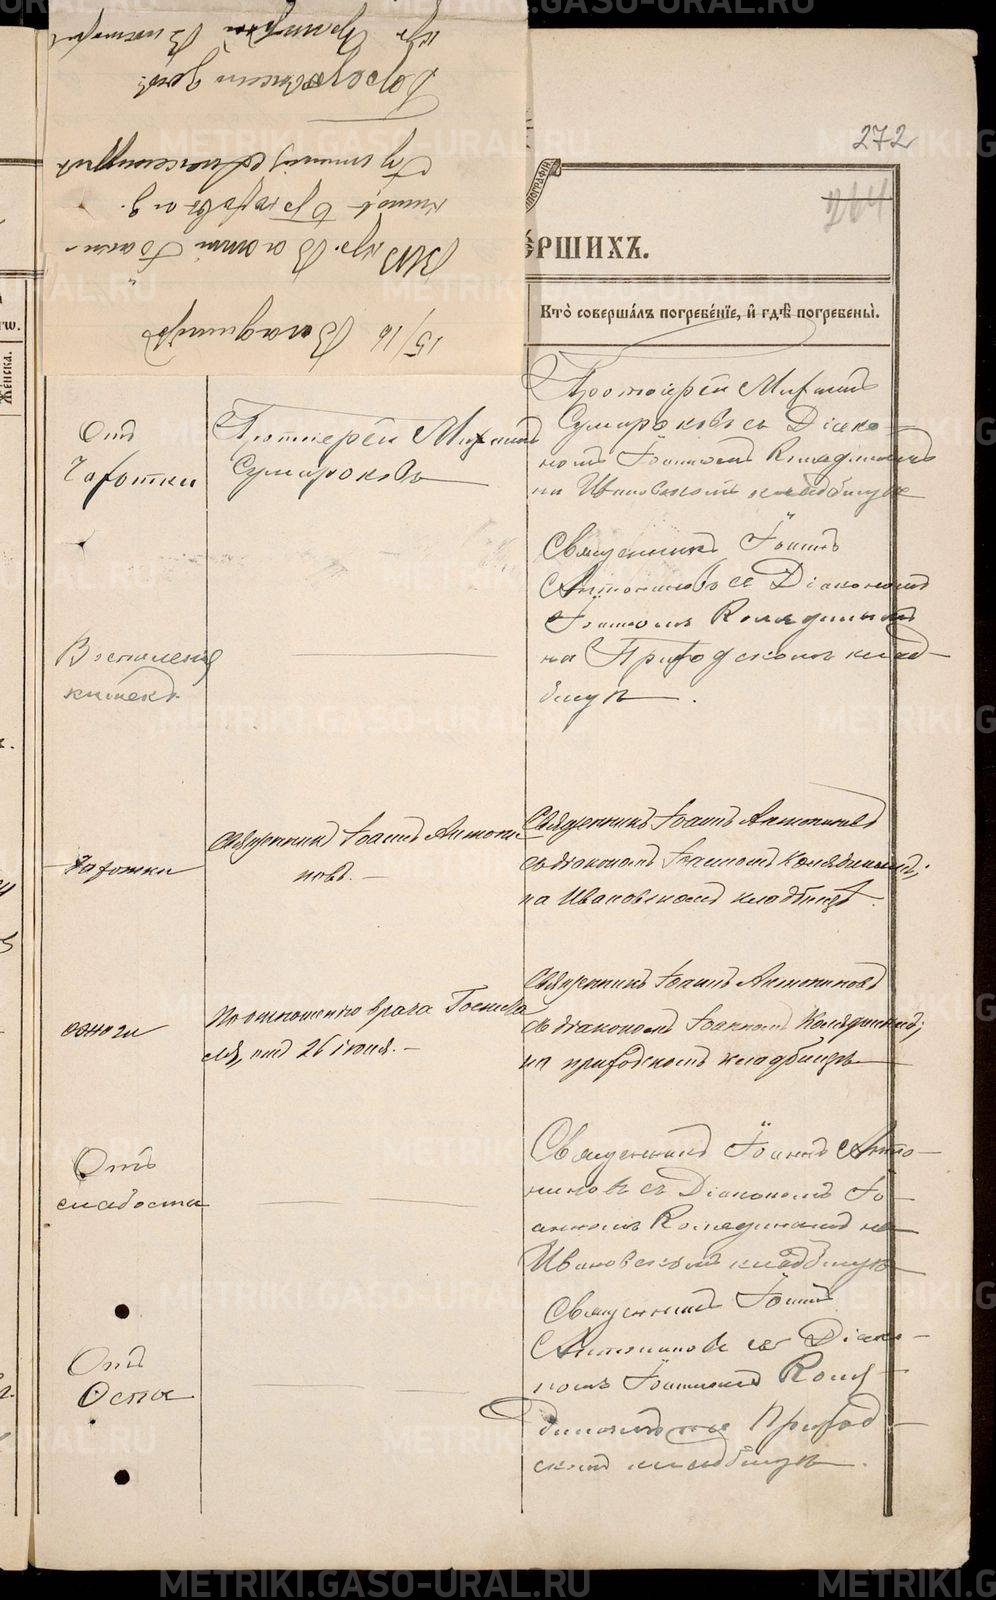 272
264
ЕРШИХЪ.
Кто̀ соверша́лъ погребе́нїе, и҆ гдѣ̀ погребены̀.
Же́нска.
15/16 Владиміръ
Отъ
Чахотки
Протіерей Михаилъ
Сумароковъ
Протоіерей Михаилъ
Сумароковъ съ Діако-
номъ Іоанномъ Колядинымъ
на Ивановскомъ кладбищѣ
Воспаленія
кишекъ
Священникъ Іоаннъ
Антониновъ съ Діакономъ
Іоанномъ Колядинымъ
на Приходскомъ клад-
бищѣ.
Чахотки
Священникъ Іоаннъ Антони-
новъ.
Священникъ Іоаннъ Антониновъ
съ діакономъ Іоанномъ Колядинымъ;
на Ивановскомъ кладбищѣ.
ожоги
По отношенію врача
отъ 26 іюня.
Священникъ Іоаннъ Антониновъ
съ діакономъ Іоанномъ Колядинымъ;
на приходскомъ кладбищѣ
Отъ
слабости
Священникъ Іоаннъ Анто-
ниновъ съ Діакономъ Іо-
анномъ Колядинымъ на
Ивановскомъ кладбищѣ
Отъ
Оспы
Священникъ Іоаннъ
Антониновъ съ Діако-
номъ Іоанномъ Коля-
динымъ на Приход-
скомъ кладбищѣ.
METRIKI.GASO-URAL.RU